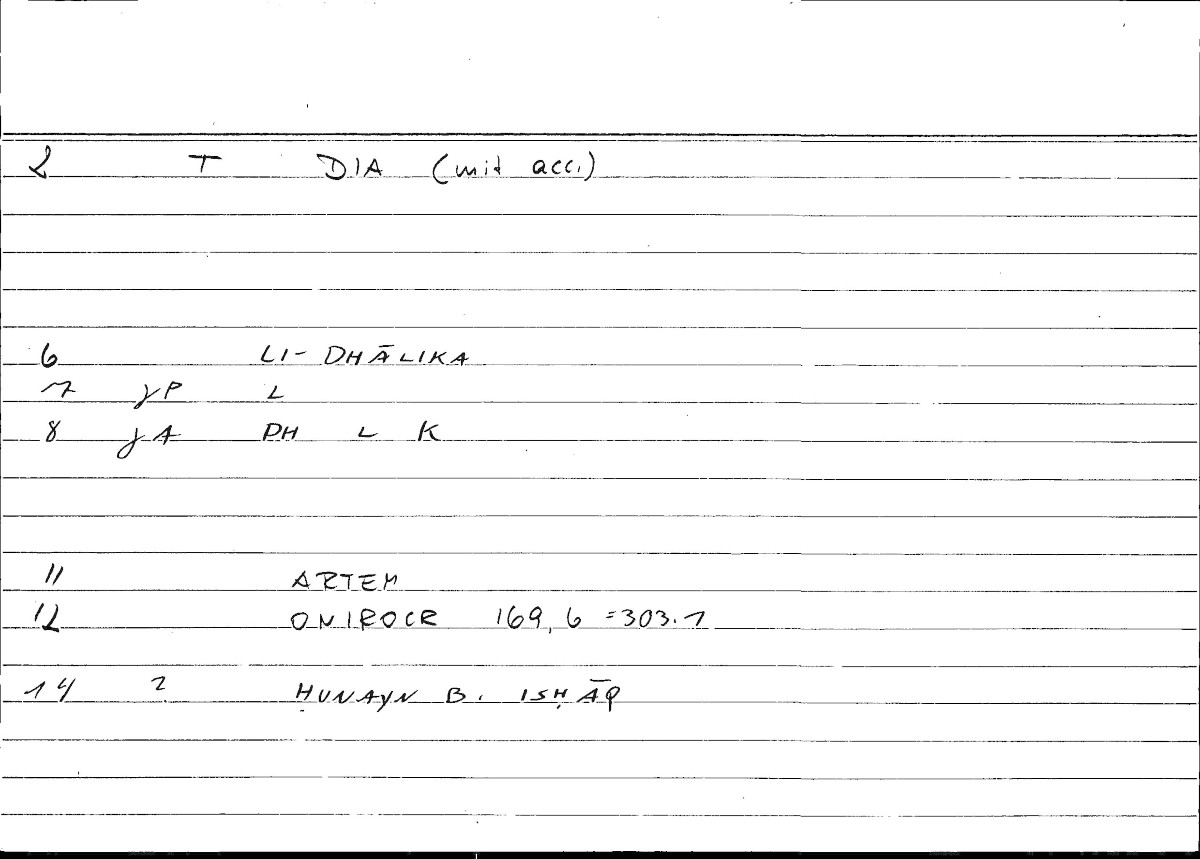 2 T DIA (mit acc.)
6 LI-DHĀLIKA
7 γP L
8 γA DH L K
11 ARTEM
12 ONIROCR 169,6 =303.1
14 2 ḤUNAYN B. ISḤĀQ